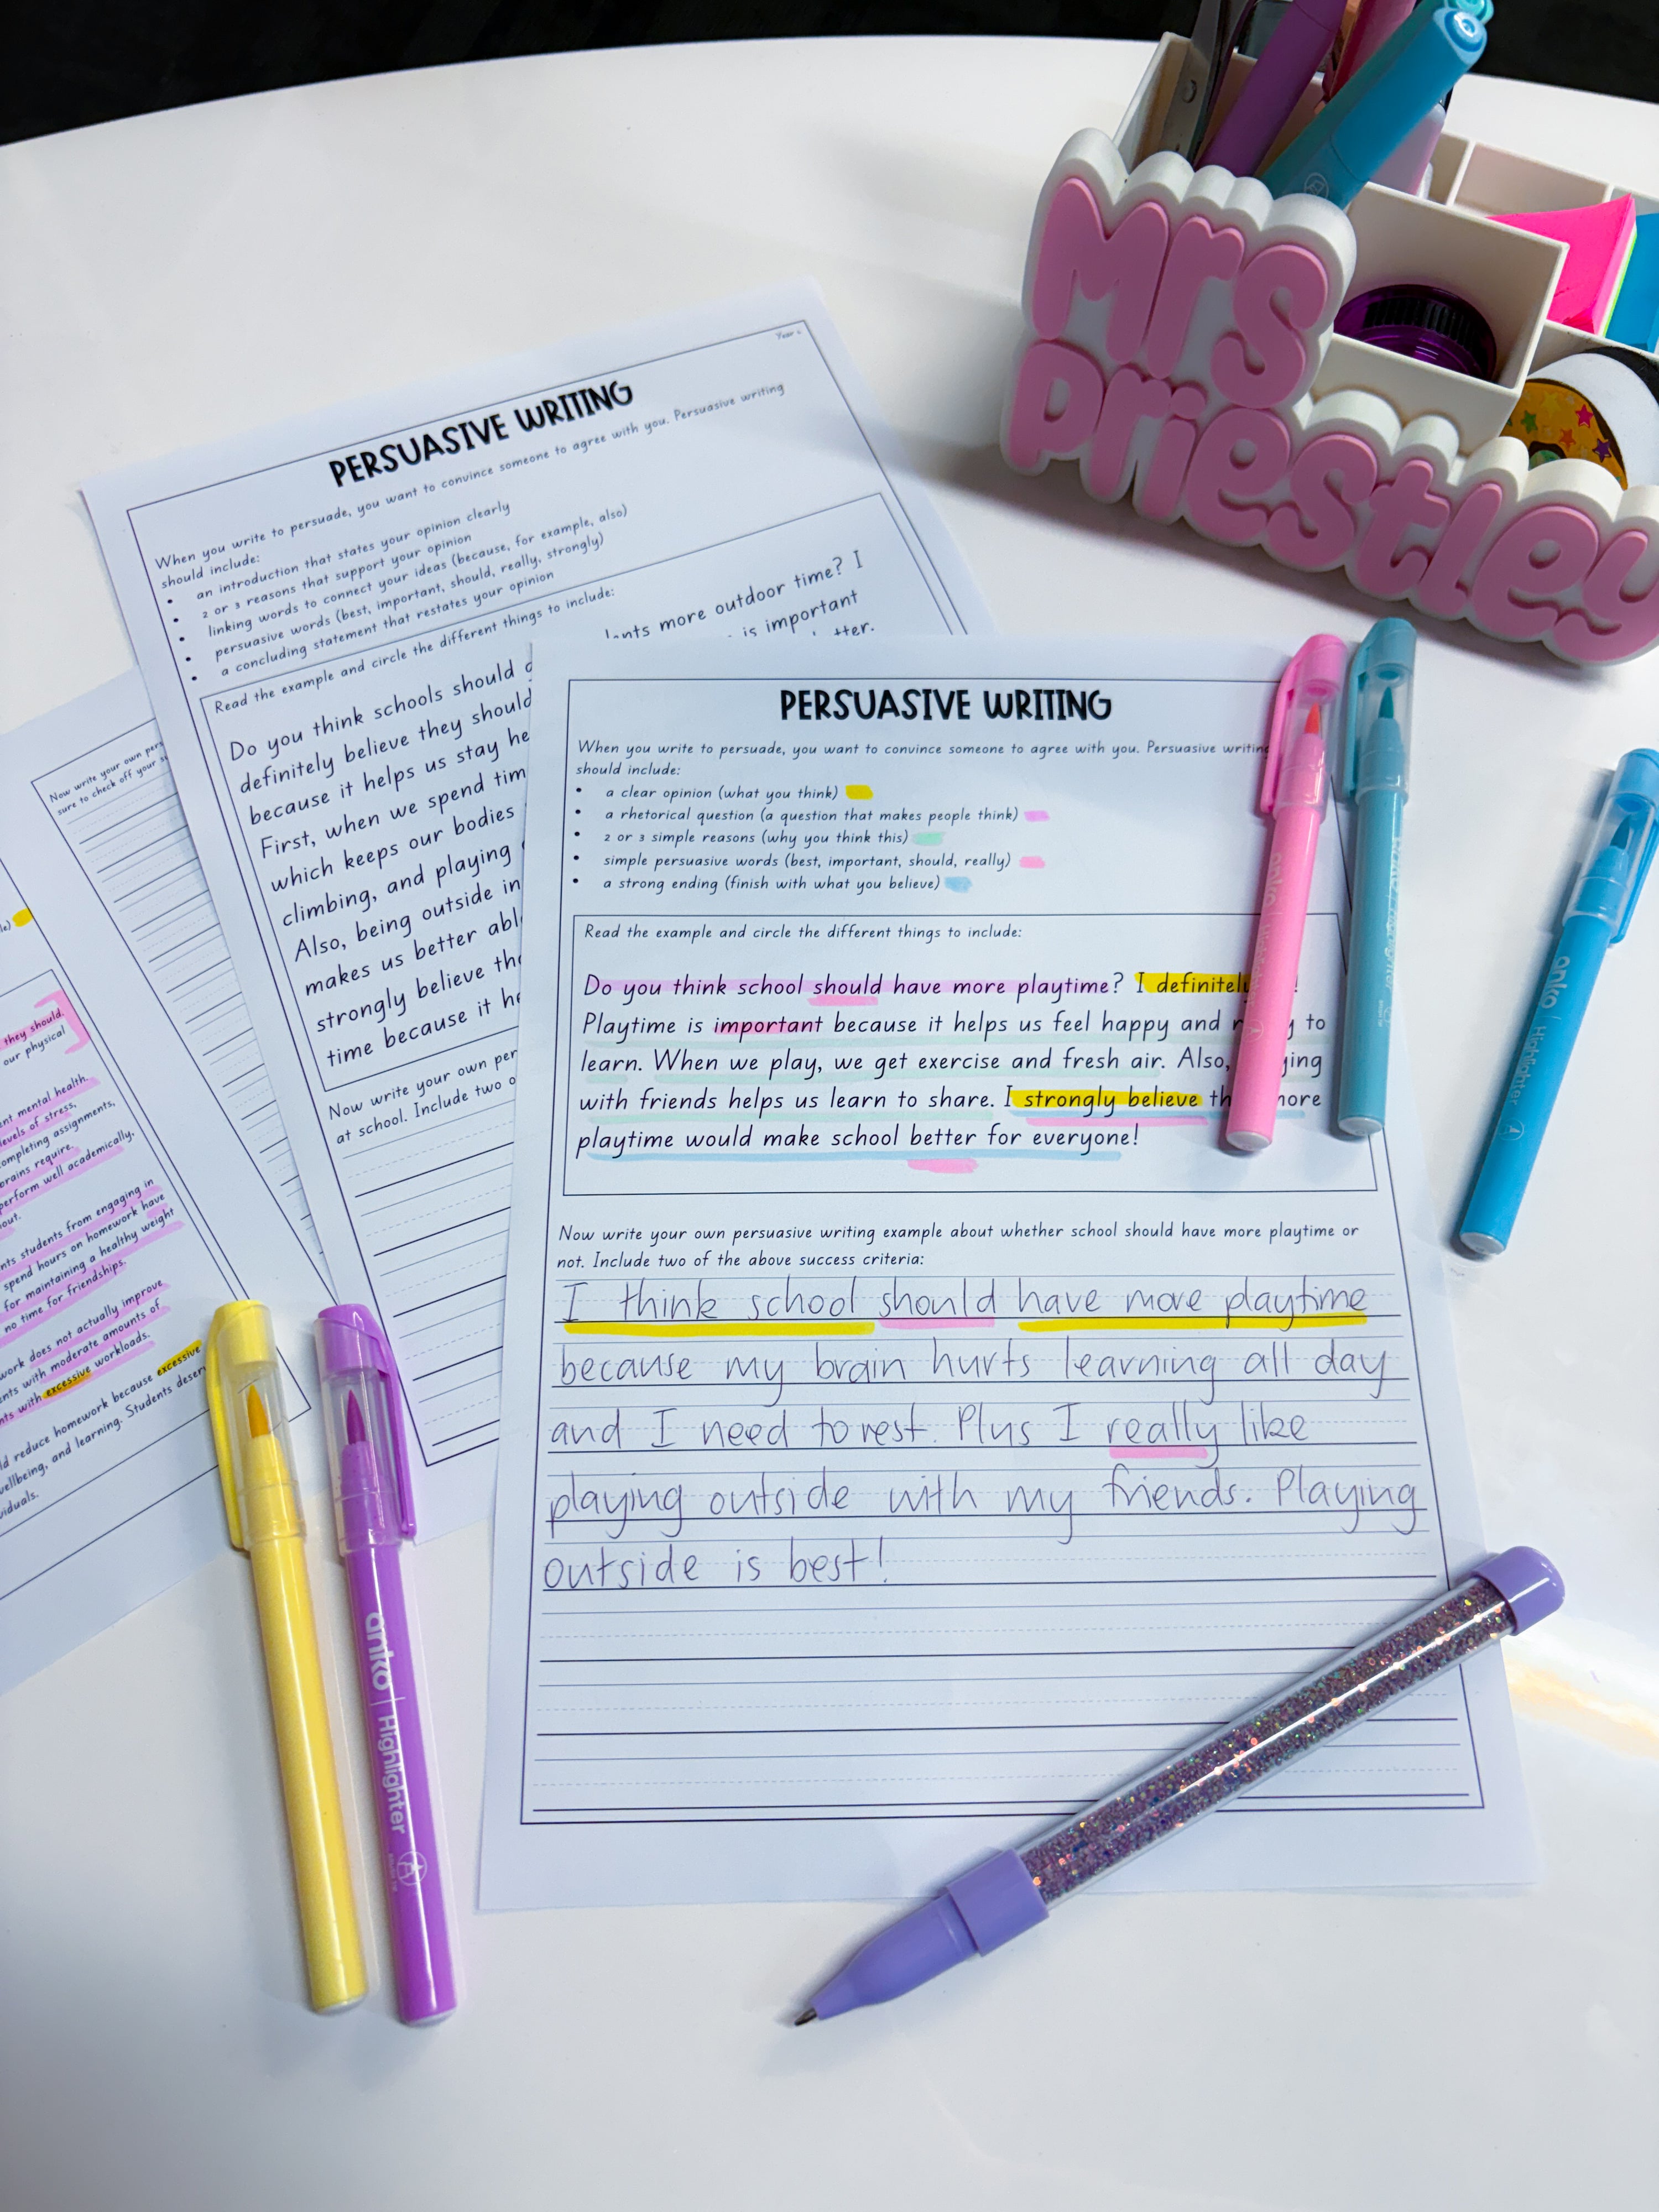 Mrs
Priestley
PERSUASIVE WRITING
When you write to persuade, you want to convince someone to agree with you. Persuasive writing
should include:
• an introduction that states your opinion clearly
• 2 or 3 reasons that support your opinion
• linking words to connect your ideas (because, for example, also)
• persuasive words (best, important, should, really, strongly)
• a concluding statement that restates your opinion
Read the example and circle the different things to include:
more outdoor time? I
Do you think schools should
is important
definitely believe they should
because it helps us stay
First, when we spend
which keeps our bodies
climbing, and playing
Also, being outside
makes us better
strongly believe
time because it
Now write your own
at school. Include two
PERSUASIVE WRITING
When you write to persuade, you want to convince someone to agree with you. Persuasive writing
should include:
• a clear opinion (what you think)
• a rhetorical question (a question that makes people think)
• 2 or 3 simple reasons (why you think this)
• simple persuasive words (best, important, should, really)
• a strong ending (finish with what you believe)
Read the example and circle the different things to include:
Do you think school should have more playtime? I definitely !
Playtime is important because it helps us feel happy and to
learn. When we play, we get exercise and fresh air. Also,
with friends helps us learn to share. I strongly believe more
playtime would make school better for everyone!
Now write your own persuasive writing example about whether school should have more playtime or
not. Include two of the above success criteria:
I think school should have more playtime
because my brain hurts learning all day
and I need to rest. Plus I really like
playing outside with my friends. Playing
outside is best!
Now write your own
sure to check off your
they should.
our physical
mental health.
levels of stress.
completing assignments,
brains require.
perform well academically.
students from engaging in
spend hours on homework have
for maintaining a healthy weight
no time for friendships.
work does not actually improve
with moderate amounts of
with excessive workloads.
reduce homework because excessive
wellbeing, and learning. Students
anko Highlighter
anko Highlighter
anko